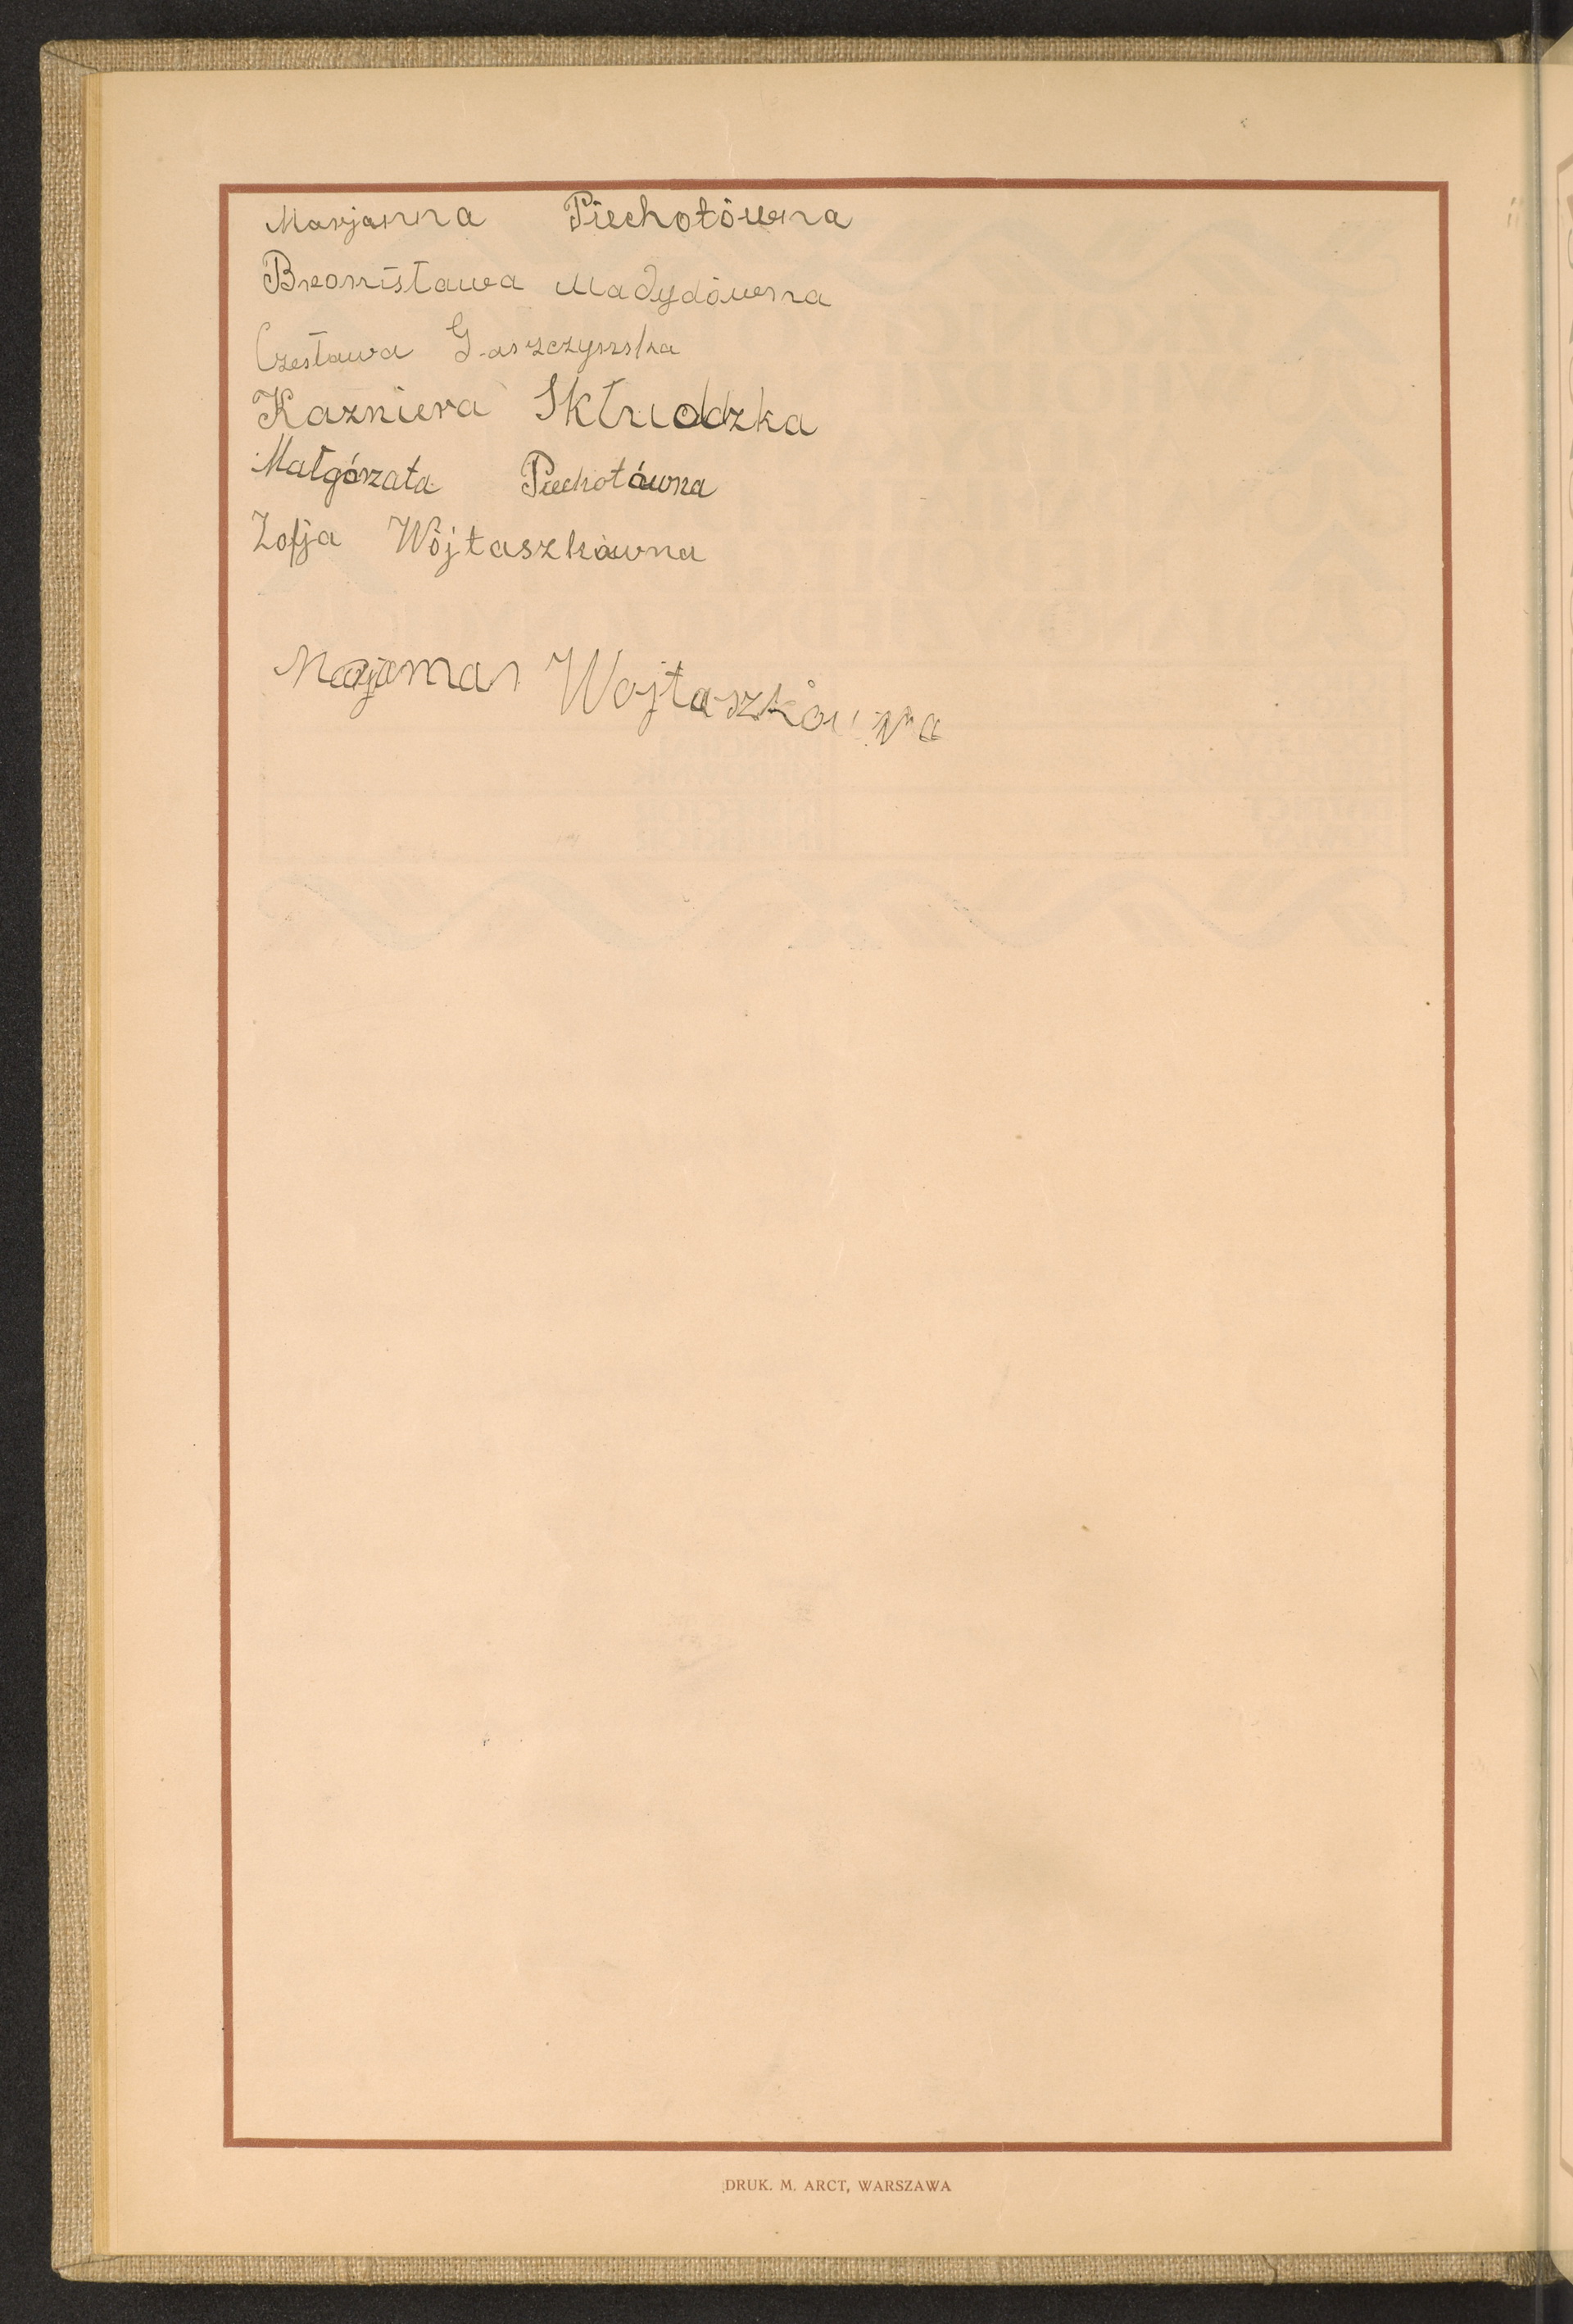 Marjanna Piechotówna
Bronisława Madydówna
Czesława Gaszczyńska
Kazniera Skłudzka
Małgórzata Piechotówna
Zofja Wójtaszkówna
Wojtaszkówna
DRUK. M. ARCT, WARSZAWA